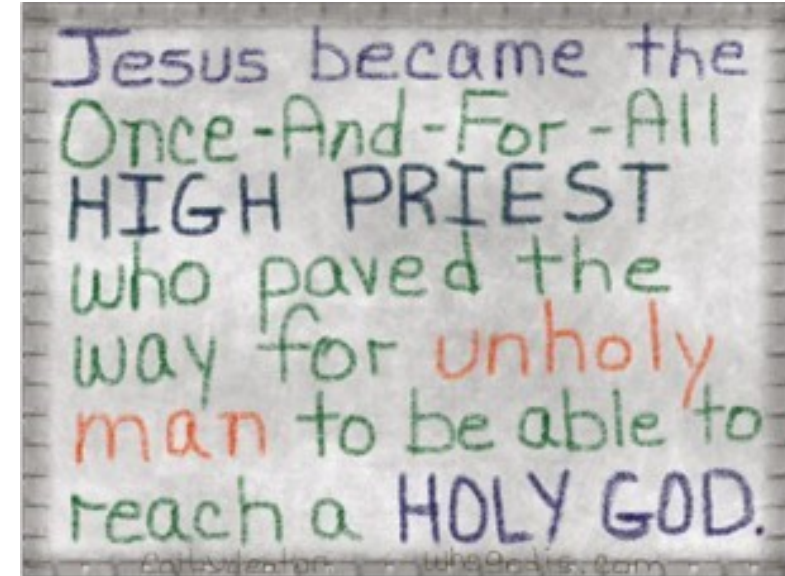 Jesus became the
Once-And-For-All
HIGH PRIEST
who paved the
way for unholy
man to be able to
reach a HOLY GOD.
whogodis.com